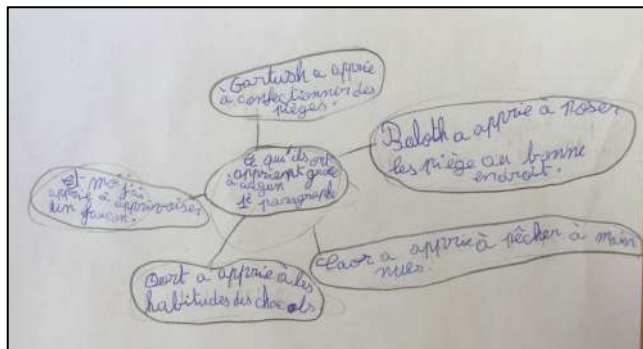 Gartush a apprie
à confectionner des
pièges.
Baloth a apprie à poser
les piège au bonne
endroit.
Ce qu'ils ont
apprient grâce
à
1e paragraphe
Et moi j'ai
apprie à apprivoiser
un faucon.
a apprie à pêcher à main
nues.
Oort a apprie à les
habitudes des chacals